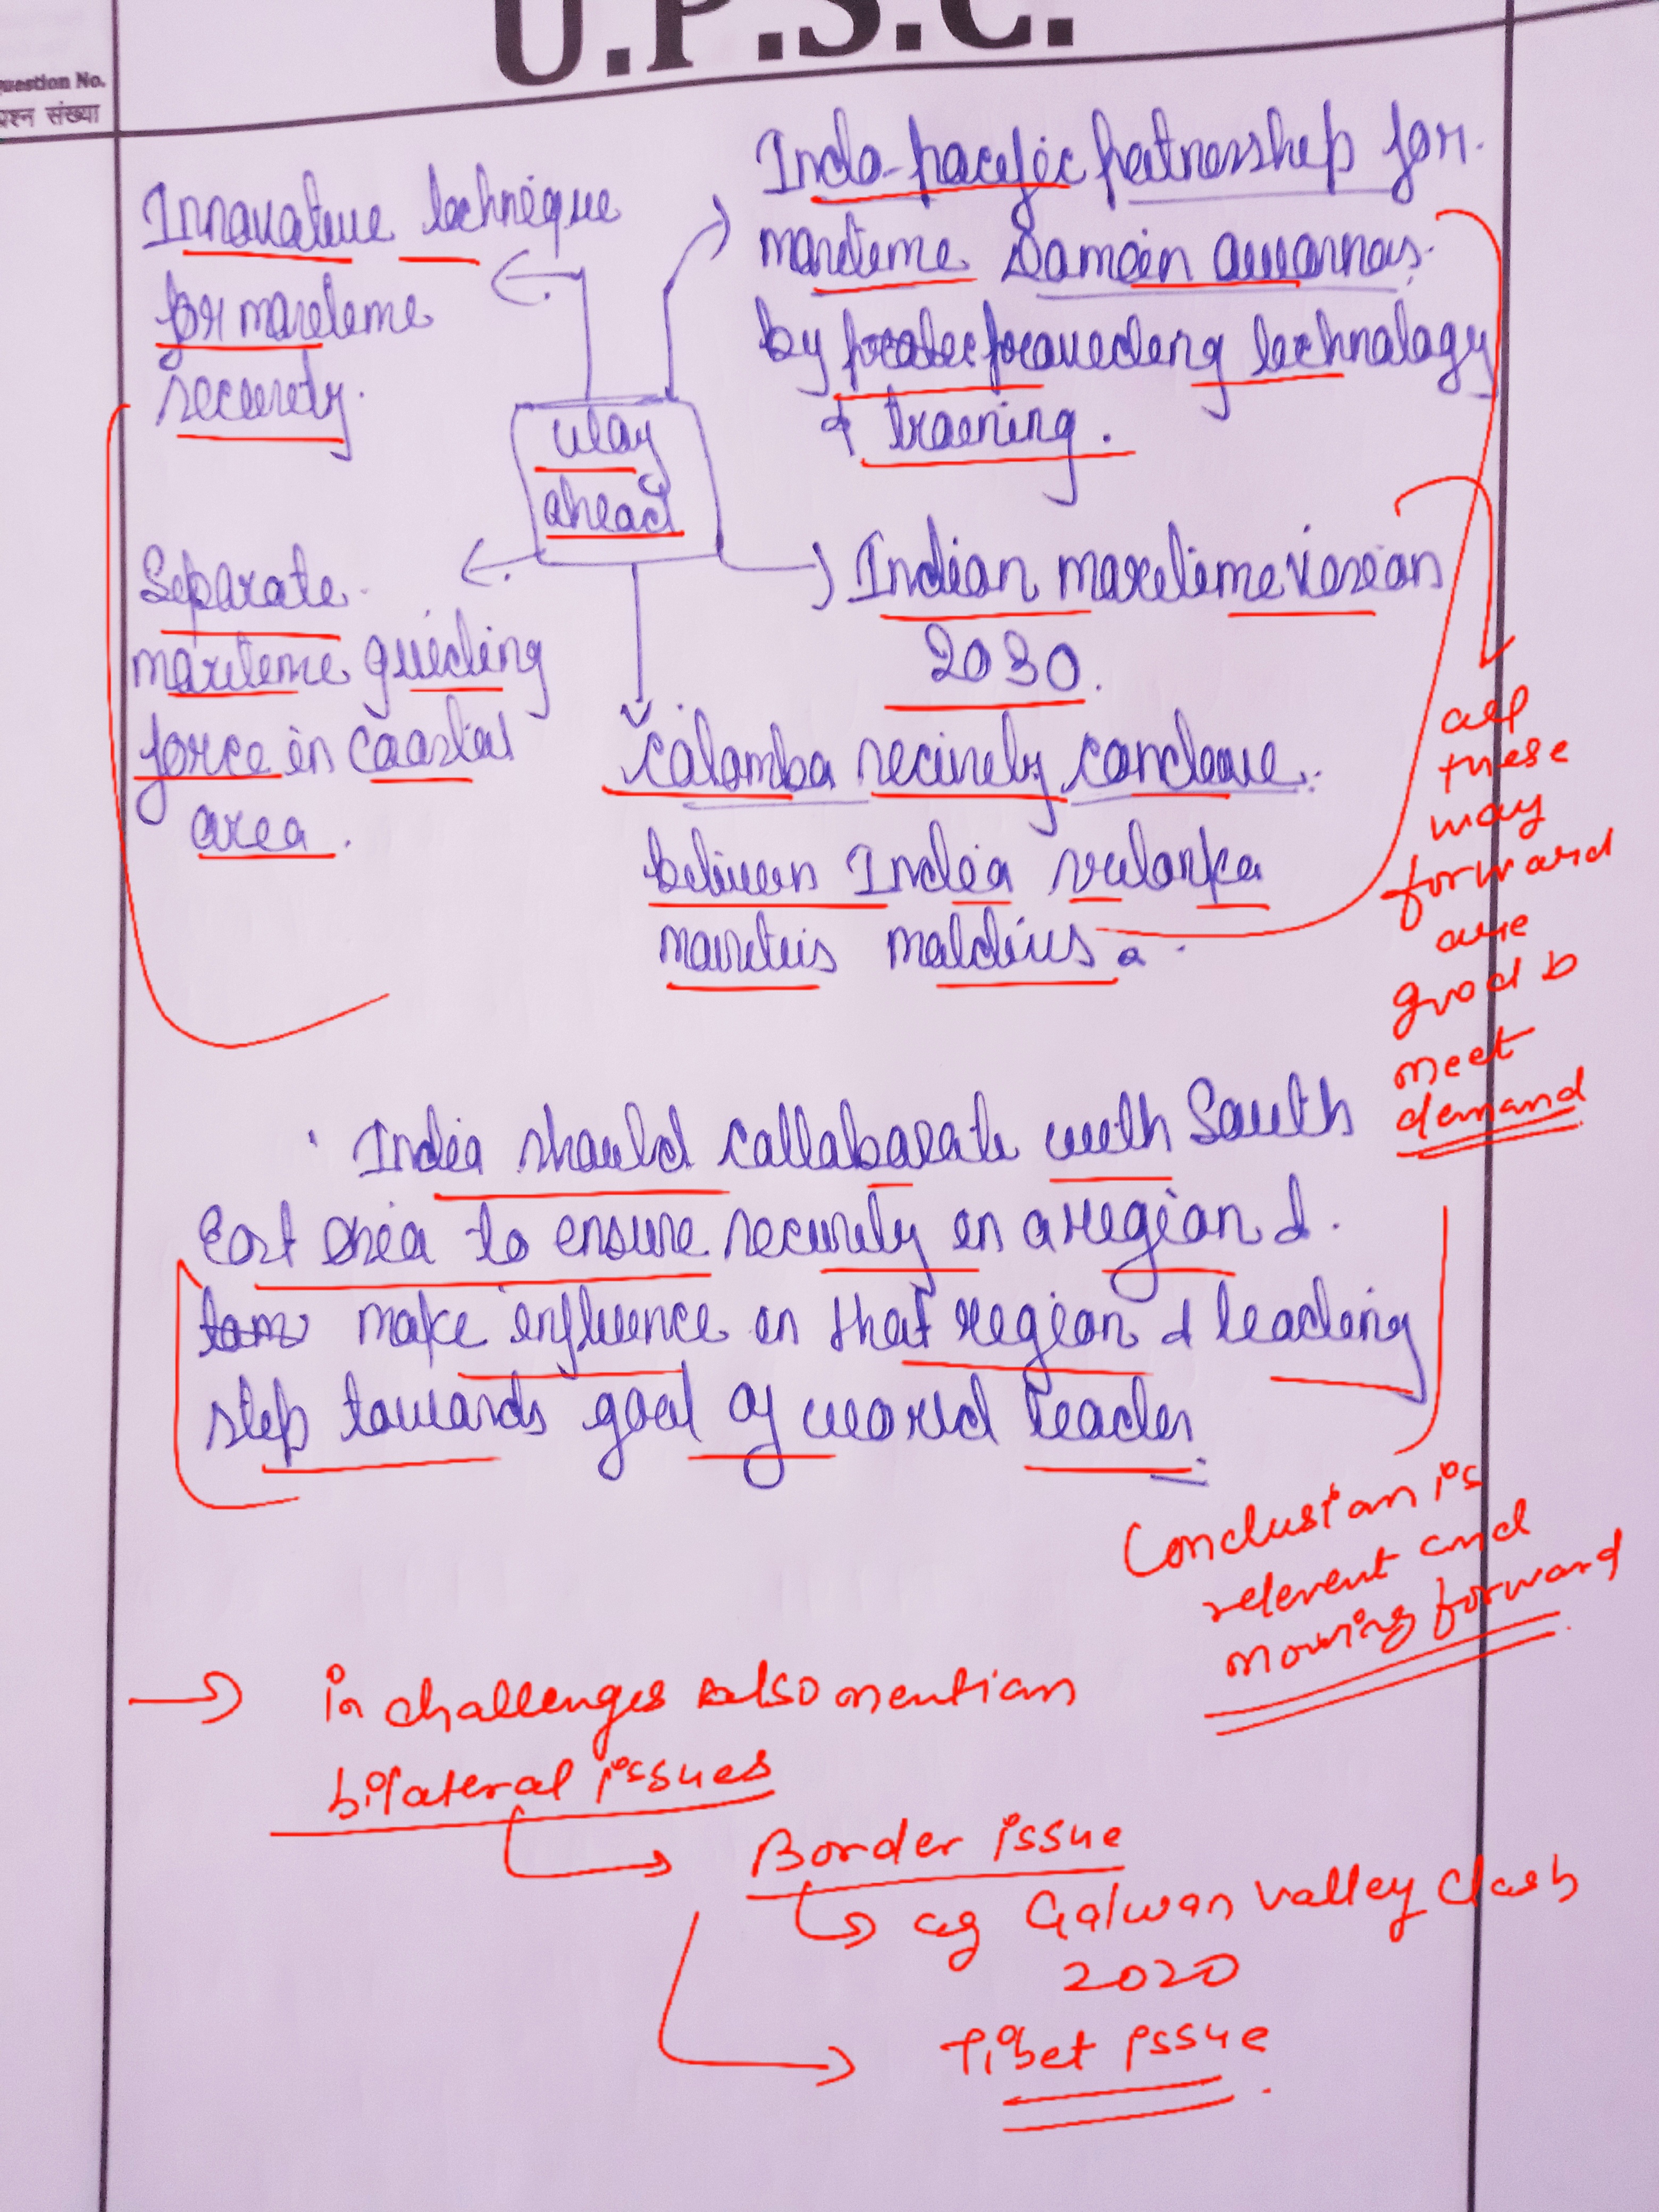 U.P.S.C.
Question No.
प्रश्न संख्या
Innovative technique
for maritime
security.
Indo-pacific partnership for
maritime Domain awarnas.
by providing technology
& training.
way
ahead
Separate
maritime guiding
force in coastal
area.
Indian maritime vision
2030.
Colombo security conclave
between India srilanka
mauritius maldives.
all
these
way
forward
are
good to
meet
demand
India should collaborate with South
East Asia to ensure security in a region &
make influence in that region & leading
step towards goal of world leader.
Conclusion is
relevent and
moving forward
→ in challenges also mention
bilateral issues
→ Border issue
→ eg Galwan valley clash
2020
→ Tibet issue